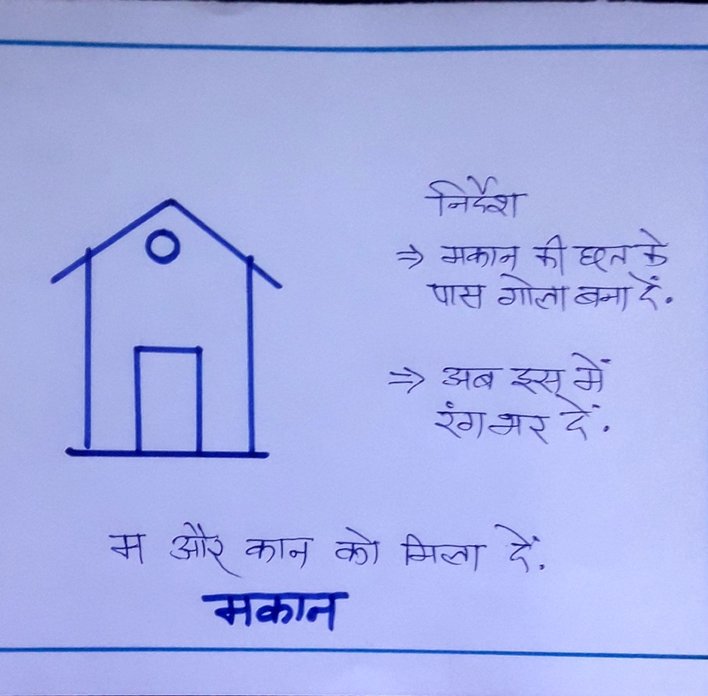 निर्देश
⇒ मकान की छत के
पास गोला बना दें.
⇒ अब इस में
रंग भर दें.
म और कान को मिला दें.
मकान